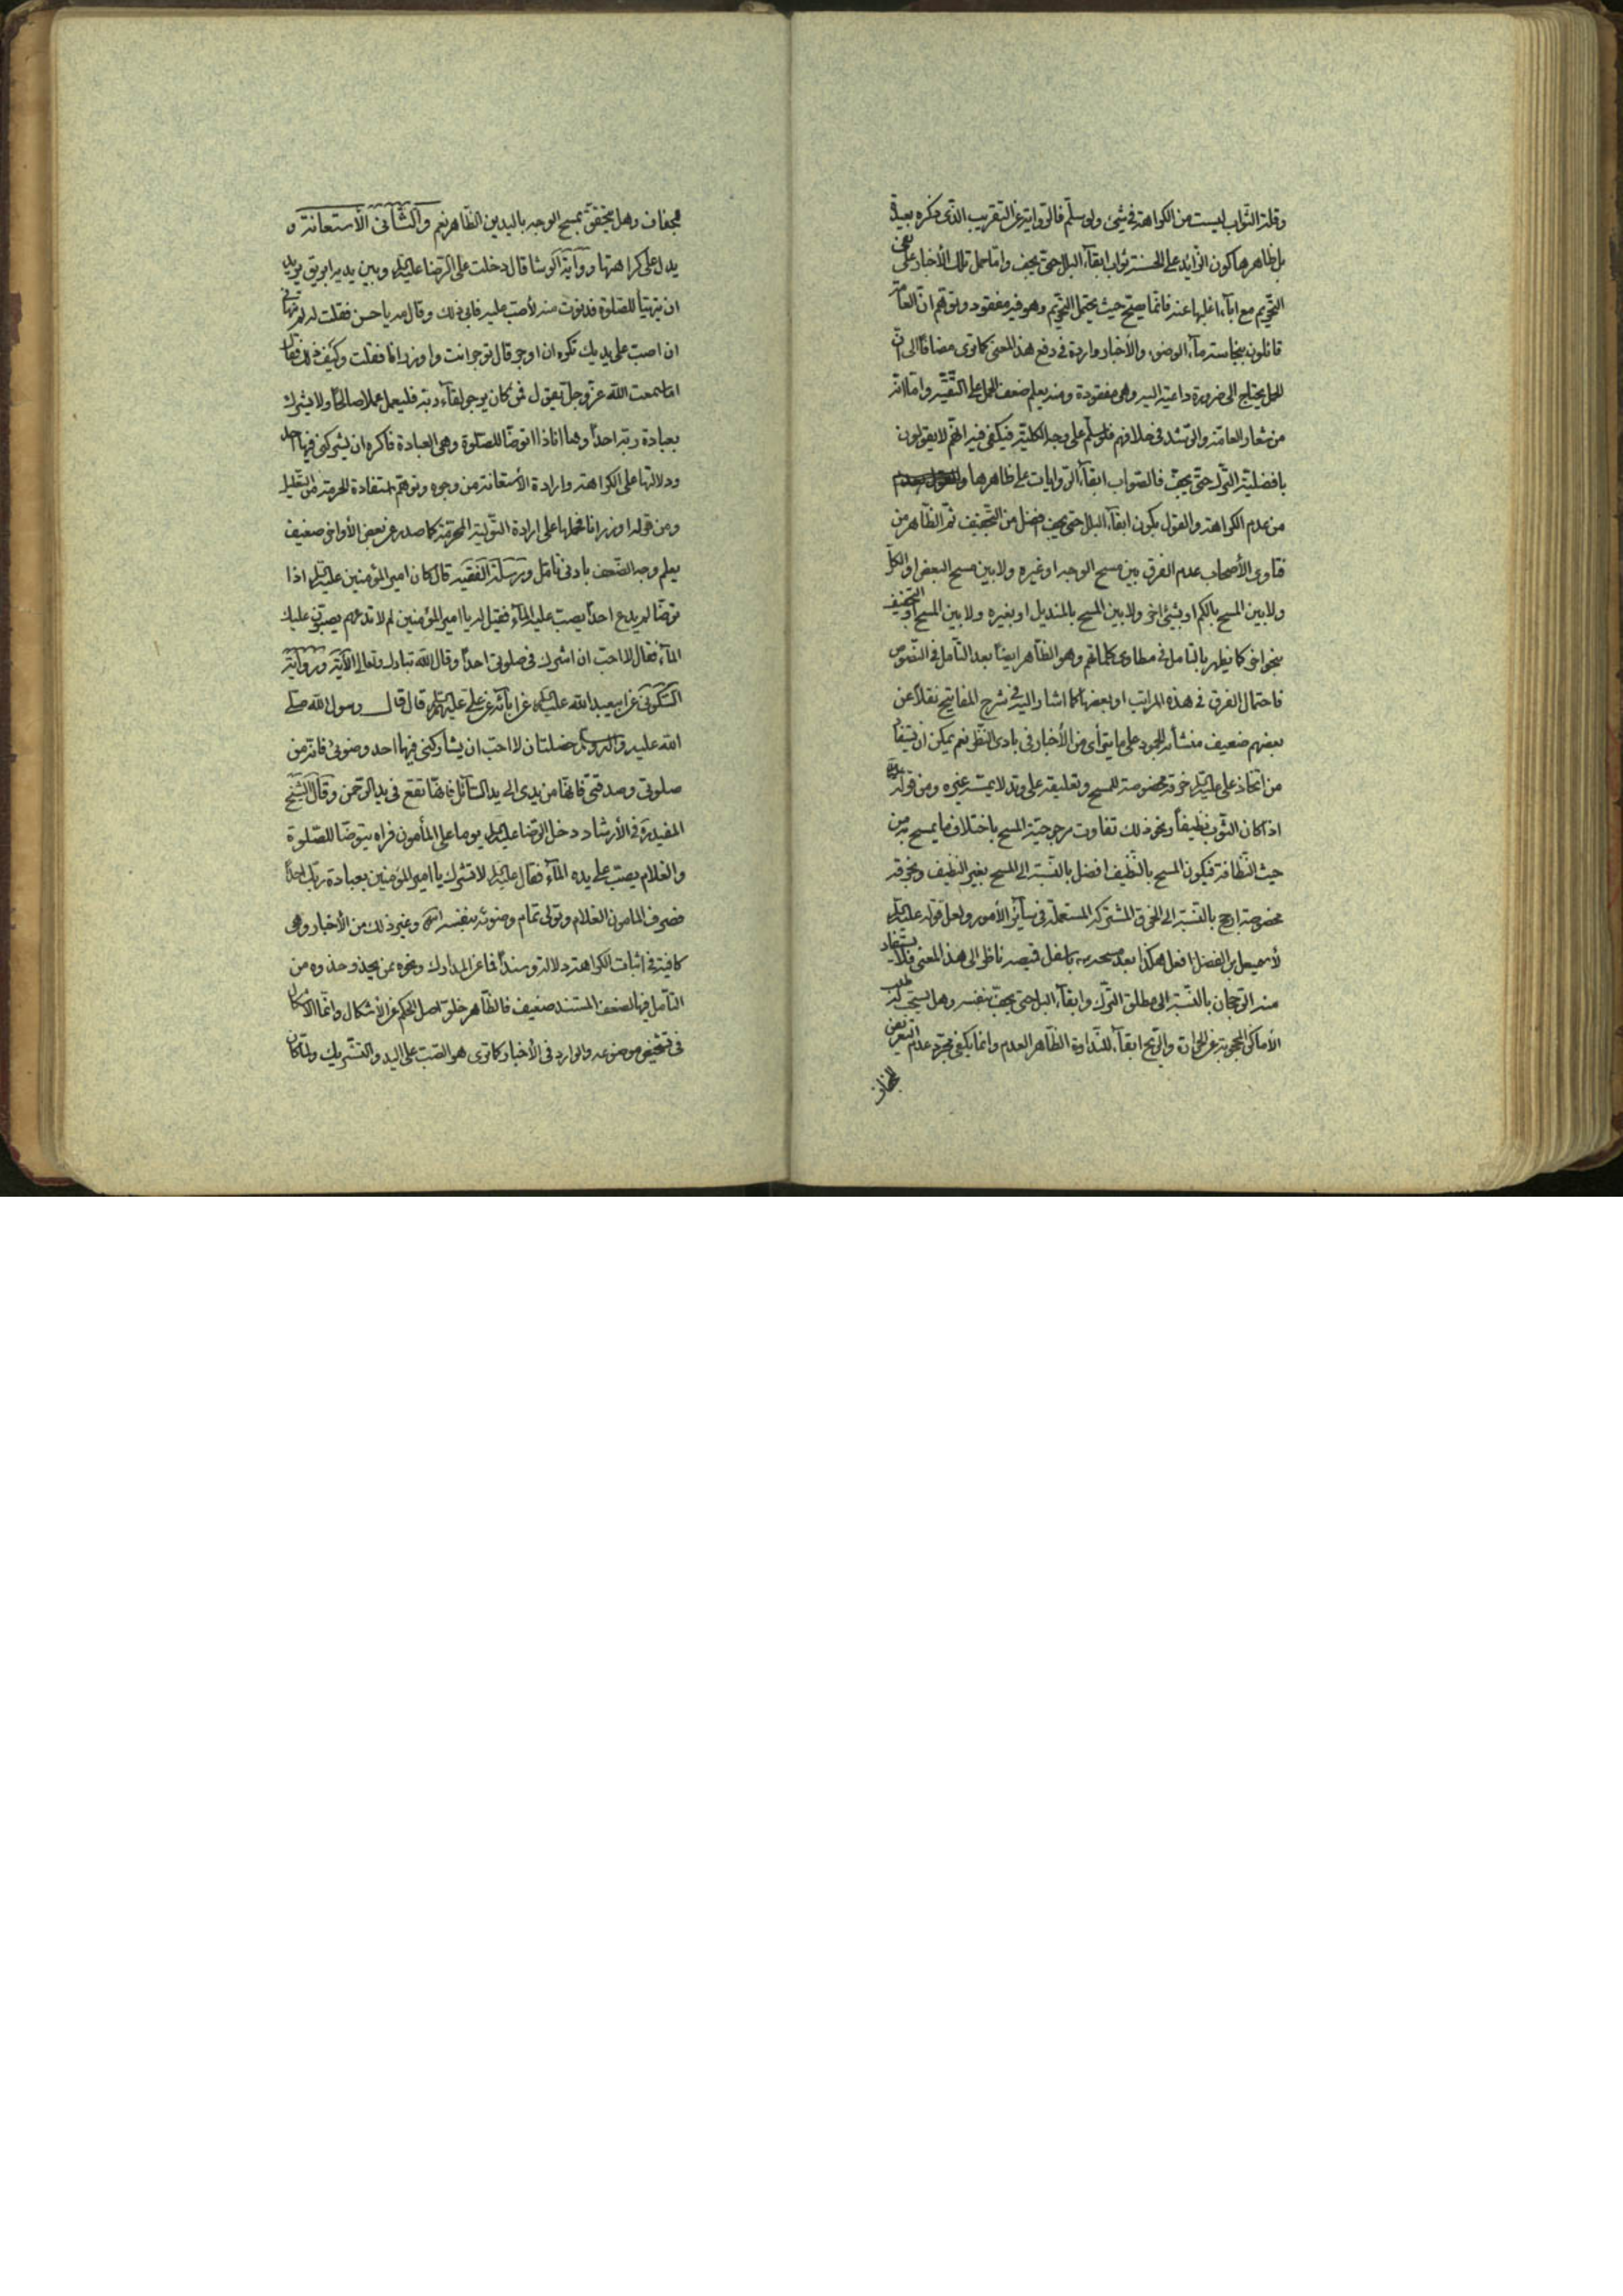 وقلة الثواب ليست من الكراهة في شيء ولو سلم فالرواية عن التقريب الذي ذكره بعيدة
بل ظاهرها كون الزائد على الحسنة ثواب ابقاء البلل حتى يجف واما حمل تلك الأخبار على نفي
التحريم مع اباء اغلبها عنه فانما يصح حيث يحتمل التحريم وهو فيه مفقود وتوهم ان العامة
قائلون بنجاسة ماء الوضوء والأخبار واردة في دفع هذا المعنى كما ترى مضافا الى ان
الحمل يحتاج الى ضرورة داعية اليه وهي مفقودة ومنه يعلم ضعف الحمل على التقية واما انه
من شعار العامة والرشد في خلافهم فلو سلم على وجه الكلية فيكفي فيه انهم لا يقولون
بافضلية الترك حتى يجف فالصواب ابقاء الروايات على ظاهرها
من عدم الكراهة والقول بكون ابقاء البلل حتى يجف افضل من التجفيف ثم الظاهر من
فتاوى الأصحاب عدم الفرق بين مسح الوجه او غيره ولا بين مسح البعض او الكل
ولا بين المسح بالكم او بشيء اخر ولا بين المسح بالمنديل او بغيره ولا بين المسح او التجفيف
بنحو اخر كما يظهر بالتامل في مطاوى كلماتهم وهو الظاهر ايضا بعد التامل في النصوص
فاحتمال الفرق في هذه المراتب او بعضها كما اشار اليه في شرح المفاتيح نقلا عن
بعضهم ضعيف منشأه الجمود على ما يتراى من الأخبار في بادى النظر نعم يمكن ان يستفاد
من اتخاذ على عليه السلم خرقة مخصوصة للمسح وتعليقه على وتد لا يمسه غيره ومن قوله
اذا كان الثوب نظيفا ونحو ذلك تفاوت مرجوحية المسح باختلاف ما يمسح به من
حيث النظافة فيكون المسح بالنظيف افضل بالنسبة الى المسح بغير النظيف وبخرقة
مخصوصة ارجح بالنسبة الى الخرق المشتركة المستعملة في سائر الأمور ولعل قوله عليه السلم
لأسمعيل بن الفضل افعل هكذا بعد مسحه باسفل قميصه ناظر الى هذا المعنى فلا يستفاد
منه الرجحان بالنسبة الى مطلق الترك وابقاء البلل حتى يجف بنفسه وهل يستحب طلب
الأماكن المحجوبة عن الحرارة والريح ابقاء للنداوة الظاهر العدم وانما يكفي مجرد عدم التعرض
للجفاف
للجفاف وهل يتحقق بمسح الوجه باليدين الظاهر نعم والثاني الأستعانة و
يدل على كراهتها رواية الوشا قال دخلت على الرضا عليه السلم وبين يديه ابريق يريد
ان يتهيأ للصلوة فدنوت منه لأصب عليه فابى ذلك وقال مه يا حسن فقلت له لم تنهاني
ان اصب على يديك تكره ان اوجر قال توجر انت واوزر انا فقلت وكيف ذلك فقال
اما سمعت الله عز وجل يقول فمن كان يرجو لقاء ربه فليعمل عملا صالحا ولا يشرك
بعبادة ربه احدا وها انا ذا اتوضأ للصلوة وهي العبادة فاكره ان يشركني فيها احد
ودلالتها على الكراهة وارادة الأستعانة من وجوه وتوهم استفادة الحرمة من التعليل
ومن قوله اوزر انا فحملها على ارادة التولية المحرمة كما صدر عن بعض الأواخر ضعيف
يعلم وجه الضعف بادنى تامل ومرسلة الفقيه قال كان امير المؤمنين عليه السلم اذا
توضأ لم يدع احدا يصب عليه الماء فقيل له يا امير المؤمنين لم لا تدعهم يصبون عليك
الماء فقال لا احب ان اشرك في صلوتي احدا وقال الله تبارك وتعالى الآية ورواية
السكوني عن ابيعبد الله عليه السلم عن ابائه عن على عليهم السلم قال قال رسول الله صلى
الله عليه واله وسلم خصلتان لا احب ان يشاركني فيها احد وضوئى فانه من
صلوتى وصدقتى فانها من يدى الى يد السائل فانها تقع في يد الرحمن وقال الشيخ
المفيد ره في الأرشاد دخل الرضا عليه السلم يوما على المأمون فراه يتوضأ للصلوة
والغلام يصب على يده الماء فقال عليه السلم لا تشرك يا امير المؤمنين بعبادة ربك احدا
فصرف المامون الغلام وتولى تمام وضوئه بنفسه انتهى وغير ذلك من الأخبار وهي
كافية في اثبات الكراهة دلالة وسندا فما عن المدارك ونحوه ممن يحذو حذوه من
التأمل فيها لضعف المستند ضعيف فالظاهر خلو اصل الحكم عن الأشكال وانما الأشكال
في تشخيص موضوعه والوارد في الأخبار كما ترى هو الصب على اليد والتشريك ولما كان